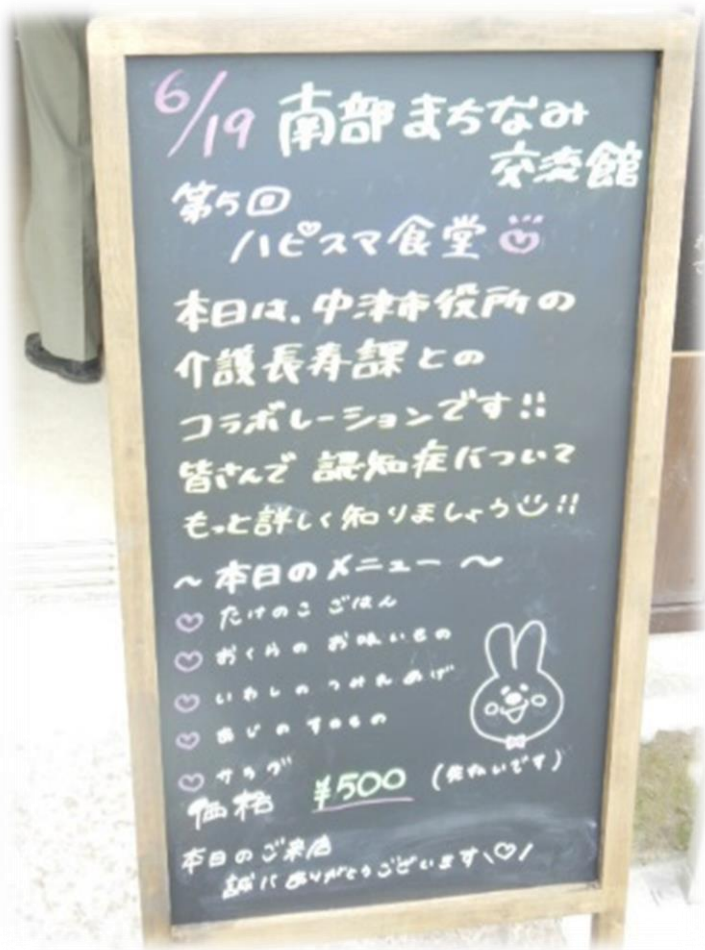 6/19 南部まちなみ
交流館
第5回
ハピスマ食堂
本日は、中津市役所の
介護長寿課との
コラボレーションです!!
皆さんで 認知症について
もっと詳しく知りましょう!!
～本日のメニュー～
たけのこごはん
おくらのお吸いもの
いわしのつみれあげ
あじのすのもの
サラダ
価格 ¥500 (先払いです)
本日のご来店
誠にありがとうございます